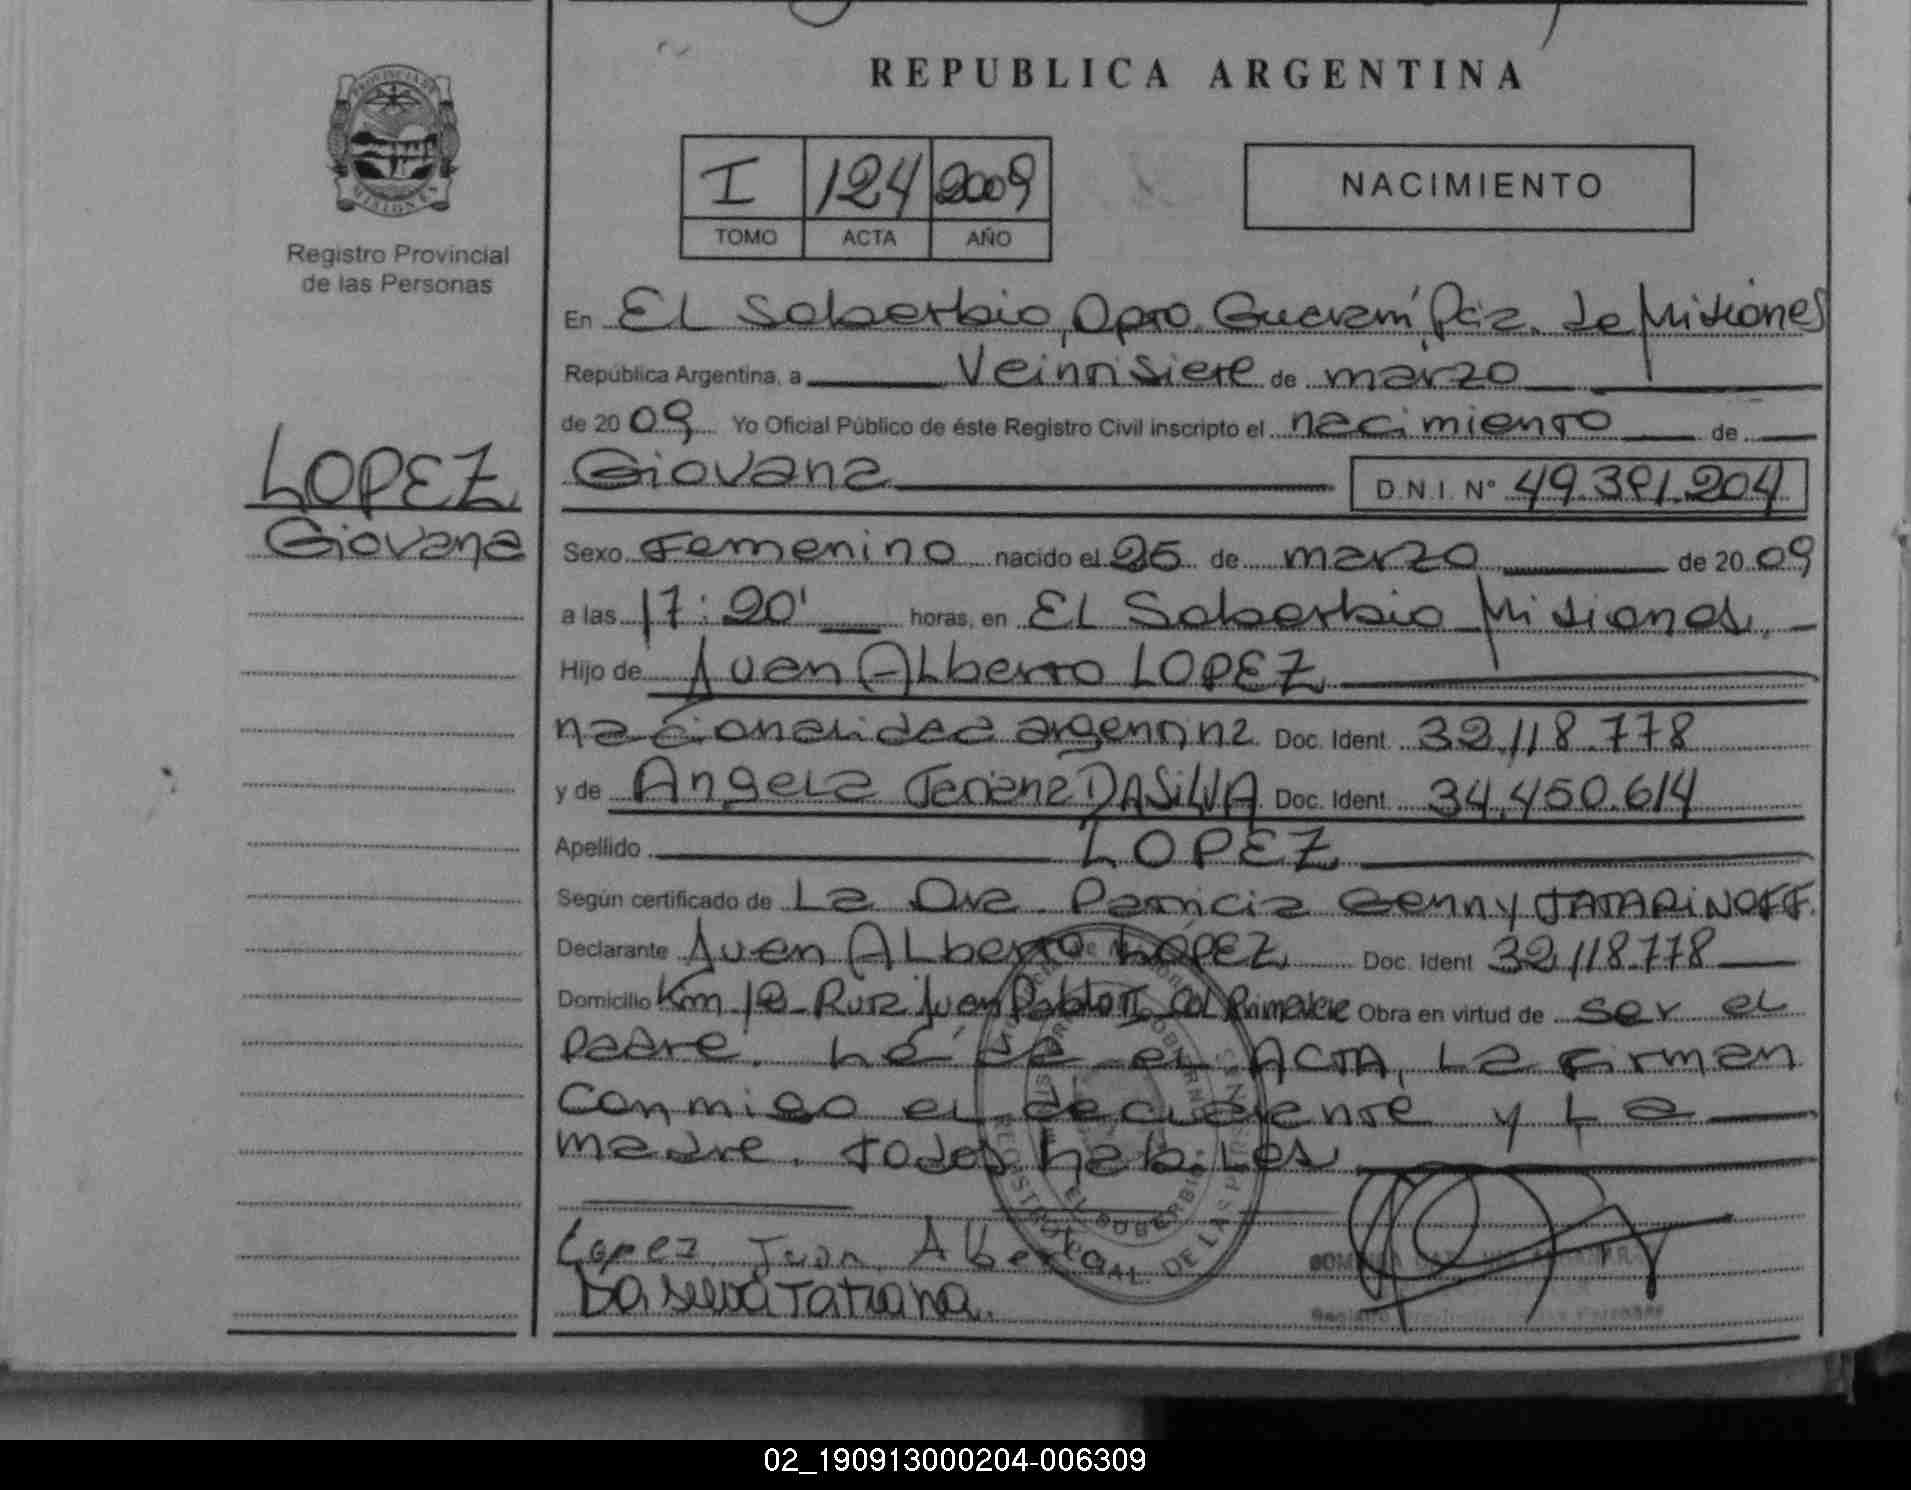 REPUBLICA ARGENTINA
PROVINCIA DE
MISIONES
Registro Provincial
de las Personas
I 124 2009
TOMO ACTA AÑO
NACIMIENTO
En El Soberbio, Dpto. Guaraní, Pcia. de Misiones
República Argentina, a Veintisiete de marzo
de 2009 Yo Oficial Público de éste Registro Civil inscripto el nacimiento de
Giovana D.N.I. N° 49.391.204
LOPEZ
Giovana
Sexo Femenino nacido el 25 de marzo de 2009
a las 17:20' horas, en El Soberbio Misiones.
Hijo de Juan Alberto LOPEZ
nacionalidad argentina Doc. Ident. 32.118.778
y de Angela Tatiana DASILVA Doc. Ident. 34.450.614
Apellido LOPEZ
Según certificado de La Dra. Patricia Genny TATARINOFF.
Declarante Juan Alberto LOPEZ Doc. Ident 32.118.778
Domicilio Km 12 Ruta Juan Pablo II Col Primavera Obra en virtud de ser el
padre. leída el ACTA, la firman
conmigo el declarante y la
madre. todos habiles
Lopez Juan Alberto
Da silva Tatiana.
EL SOBERBIO
DE LAS
02_190913000204-006309